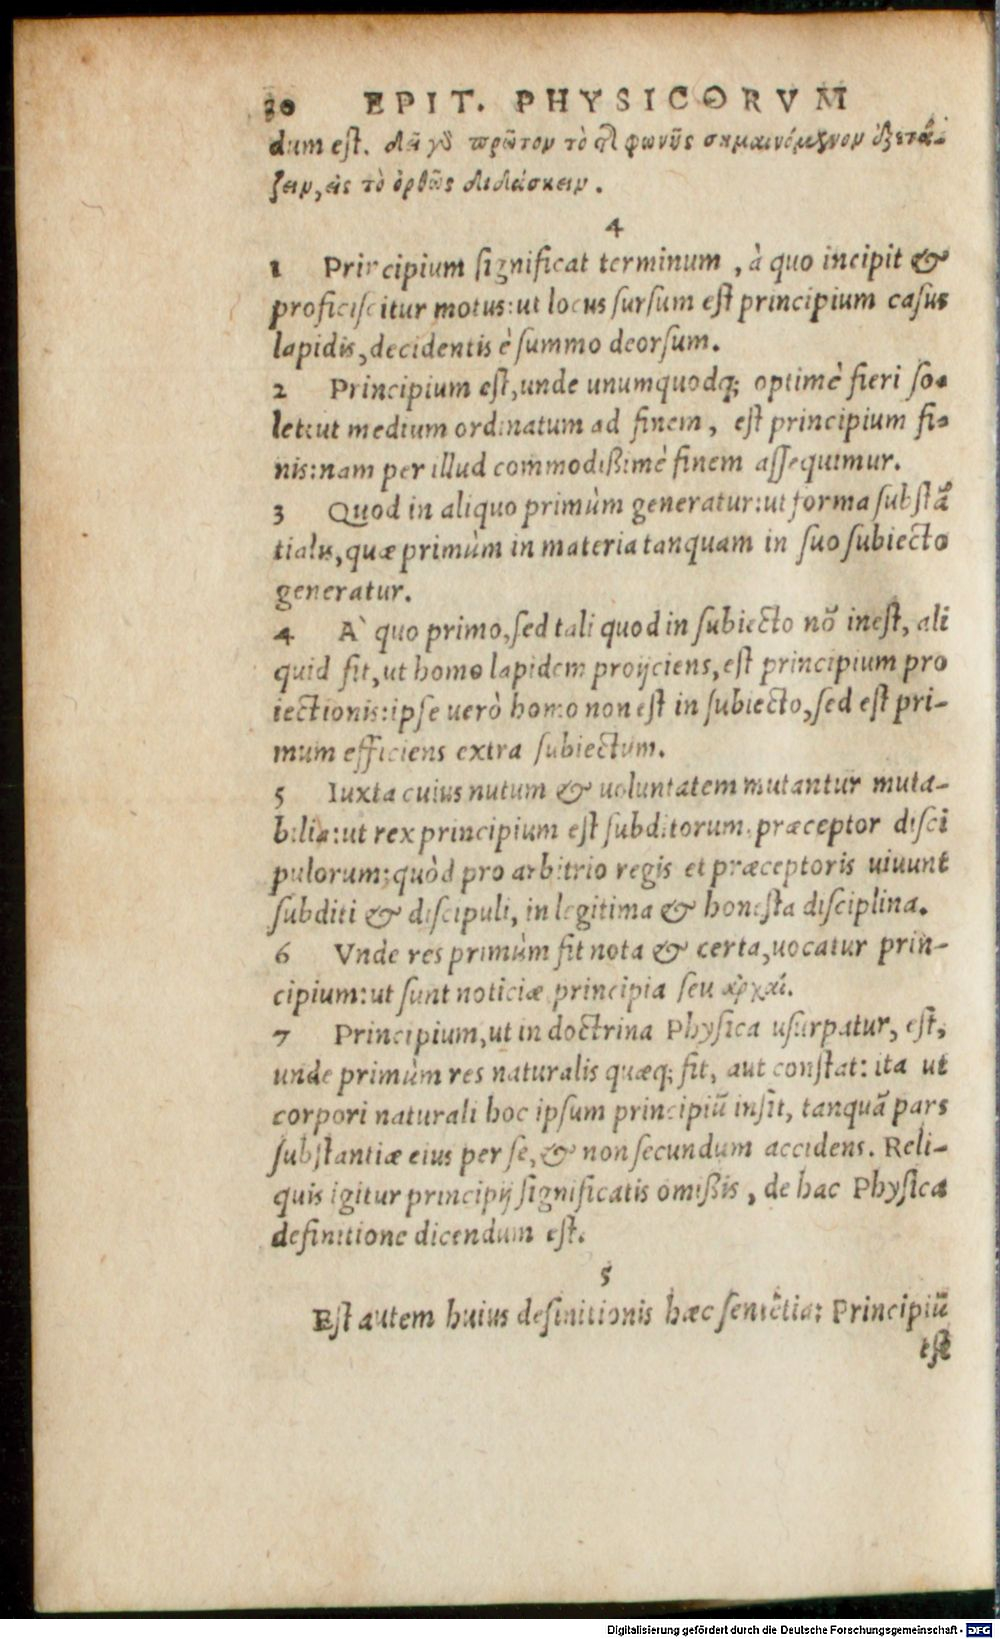 30 EPIT. PHYSICORVM
dum est. δεῖ γὰρ πρῶτον τὸ τῆς φωνῆς σημαινόμενον ἐξετά-
ζειν, εἰς τὸ ὀρθῶς διδάσκειν.
4
1 Principium significat terminum, à quo incipit &
proficiscitur motus: ut locus sursum est principium casus
lapidis, decidentis è summo deorsum.
2 Principium est, unde unumquodq; optimè fieri so-
let: ut medium ordinatum ad finem, est principium fi-
nis: nam per illud commodißimè finem assequimur.
3 Quod in aliquo primùm generatur: ut forma substā
tialis, quæ primùm in materia tanquam in suo subiecto
generatur.
4 A` quo primo, sed tali quod in subiecto nō inest, ali
quid fit, ut homo lapidem proijciens, est principium pro
iectionis: ipse uerò homo non est in subiecto, sed est pri-
mum efficiens extra subiectum.
5 Iuxta cuius nutum & uoluntatem mutantur muta-
bilia: ut rex principium est subditorum, præceptor disci
pulorum: quòd pro arbitrio regis et præceptoris uiuunt
subditi & discipuli, in legitima & honesta disciplina.
6 Vnde res primùm fit nota & certa, uocatur prin-
cipium: ut sunt noticiæ principia seu ἀρχαί.
7 Principium, ut in doctrina Physica usurpatur, est,
unde primùm res naturalis quæq; fit, aut constat: ita ut
corpori naturali hoc ipsum principiū insit, tanquā pars
substantiæ eius per se, & non secundum accidens. Reli-
quis igitur principij significatis omißis, de hac Physica
definitione dicendum est.
5
Est autem huius definitionis hæc sentētia: Principiū
est
Digitalisierung gefördert durch die Deutsche Forschungsgemeinschaft - DFG